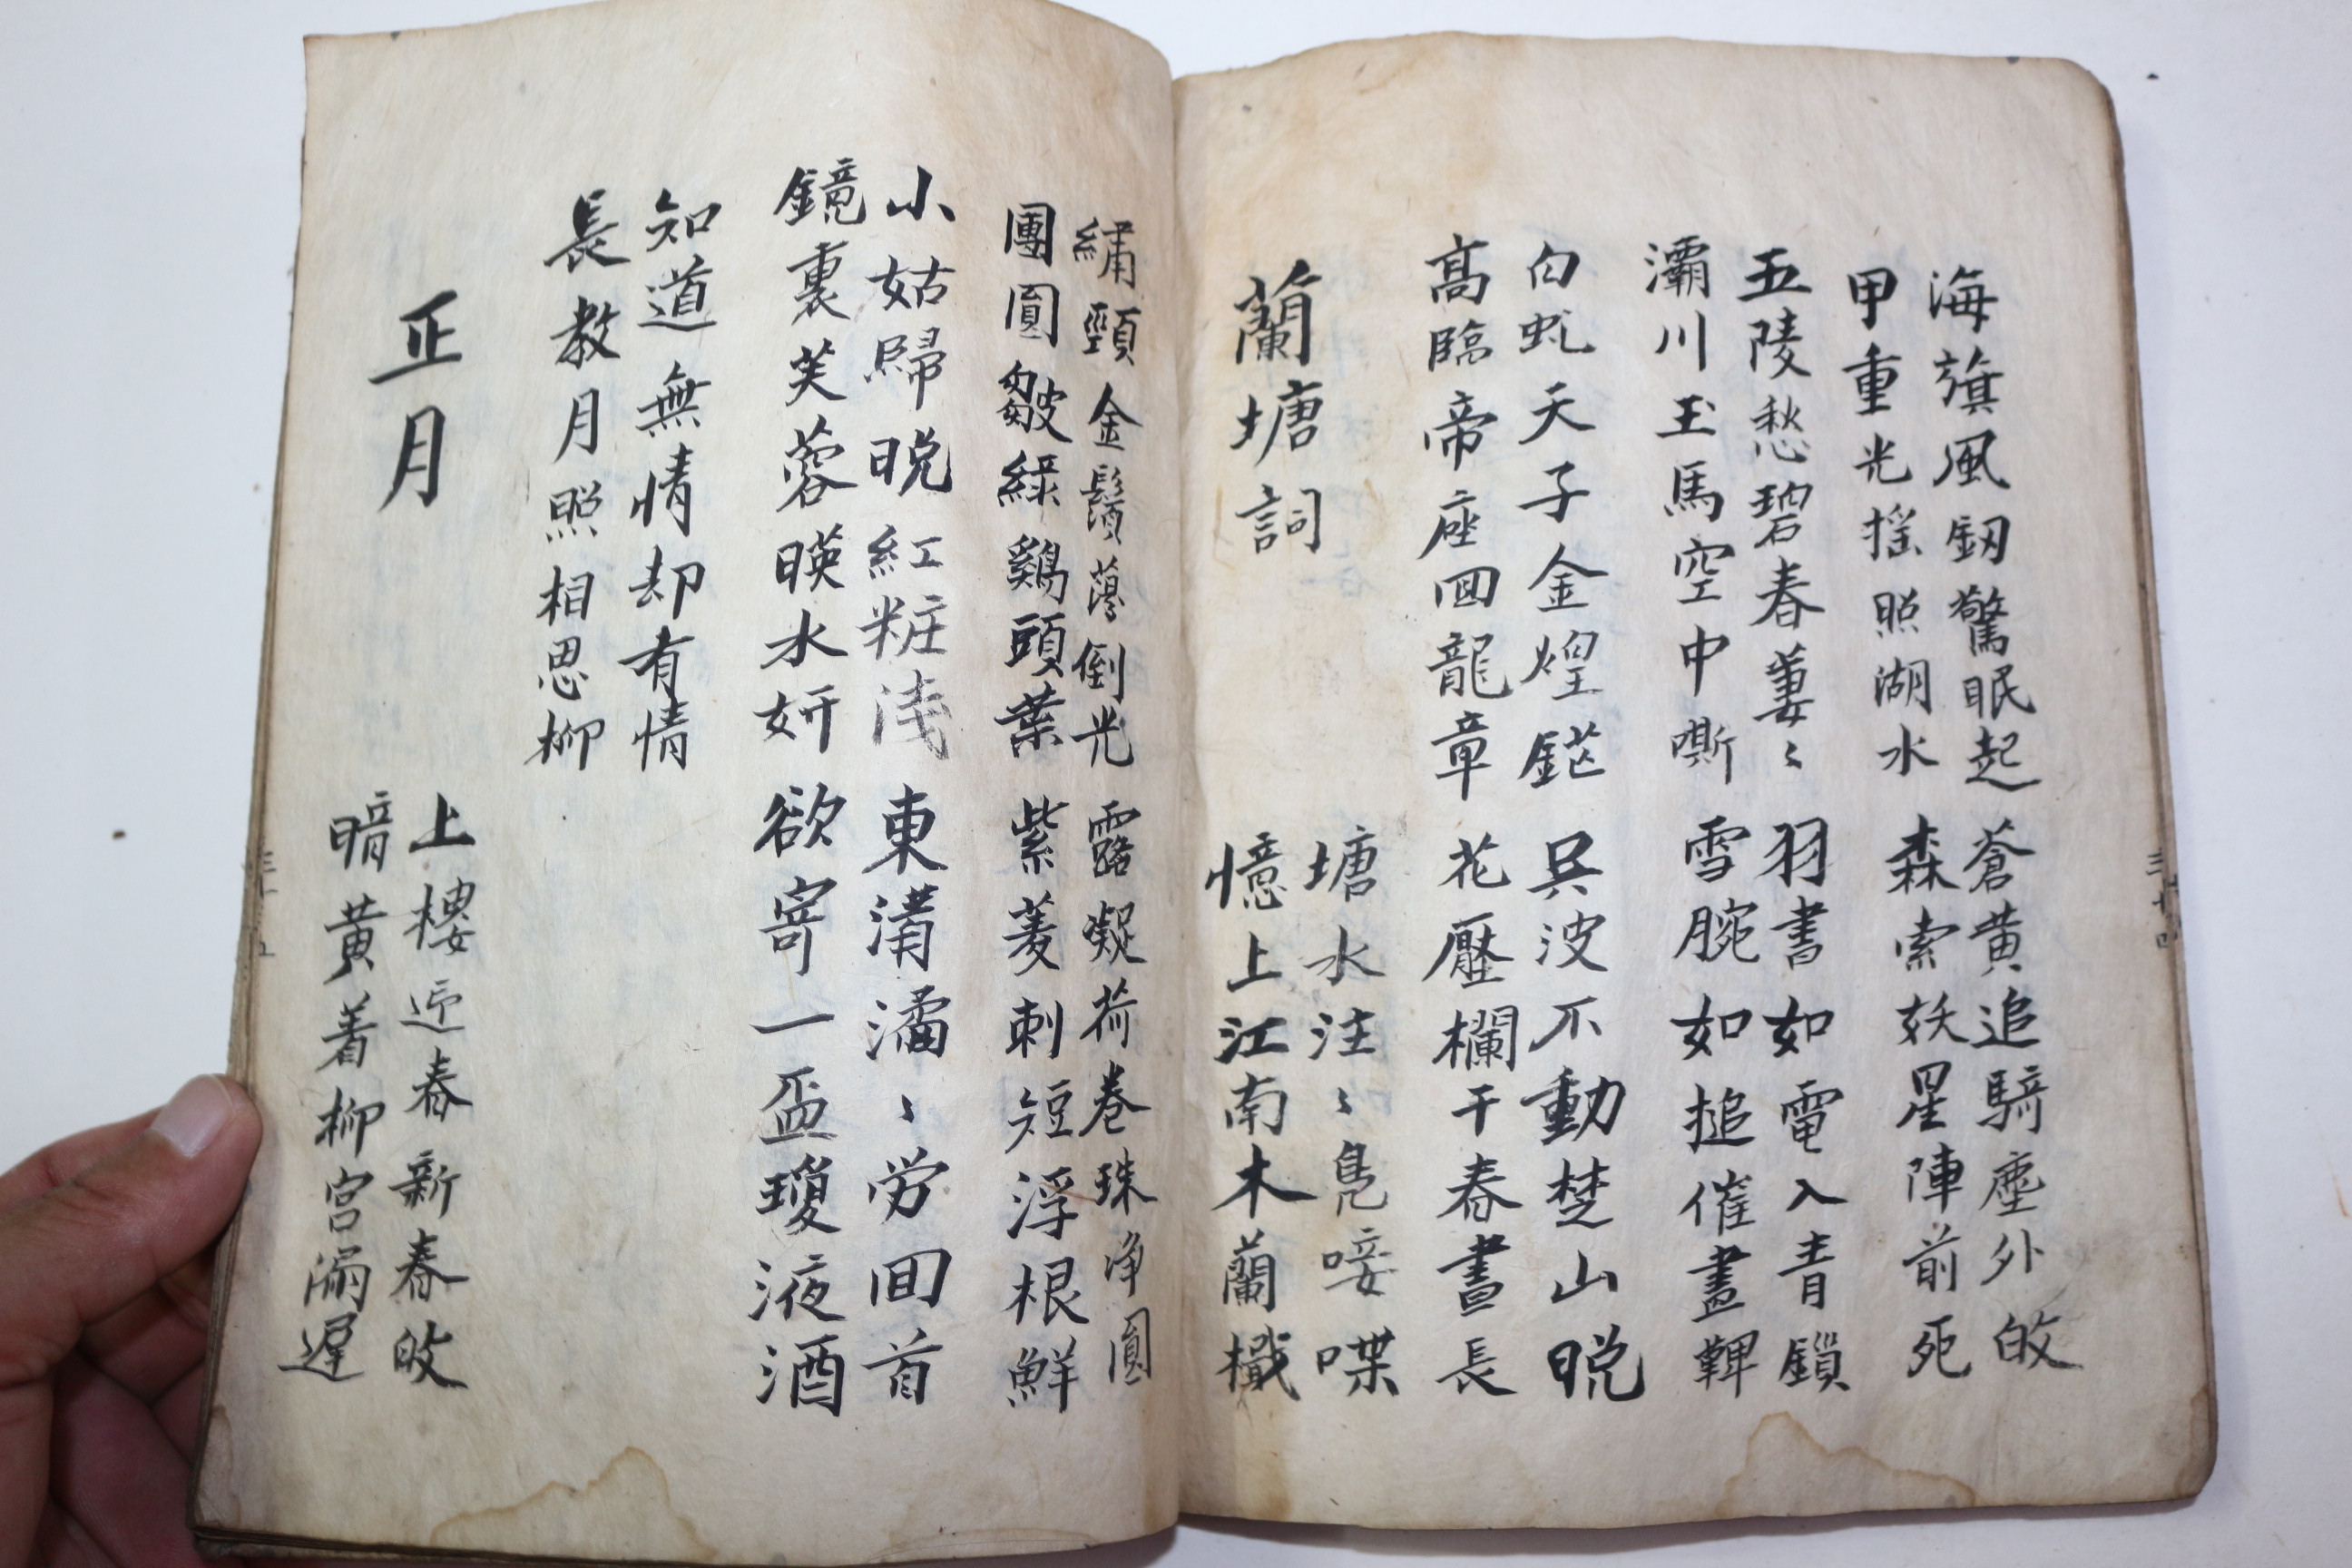 海旗風釼驚眠起 蒼黄追騎塵外皈
甲重光揺照湖水 森索妖星陣前死
五陵愁碧春萋〻 羽書如電入青鎖
灞川玉馬空中嘶 雪腕如搥催畫鞞
白虬天子金煌鋩 吳波不動楚山晩
高臨帝座回龍章 花壓欄干春晝長
蘭塘詞
塘水汪〻鳧唼喋
憶上江南木蘭檝
繡頸金鬚蕩倒光 露凝荷卷珠净圓
團圓皺綠鷄頭葉 紫菱刺短浮根鮮
小姑歸晩紅粧淺 東溝潏〻労回首
鏡裏芙蓉暎水妍 欲寄一盃瓊液酒
知道無情却有情
長教月照相思柳
正月
上樓迎春新春皈
暗黄着柳宮漏遲